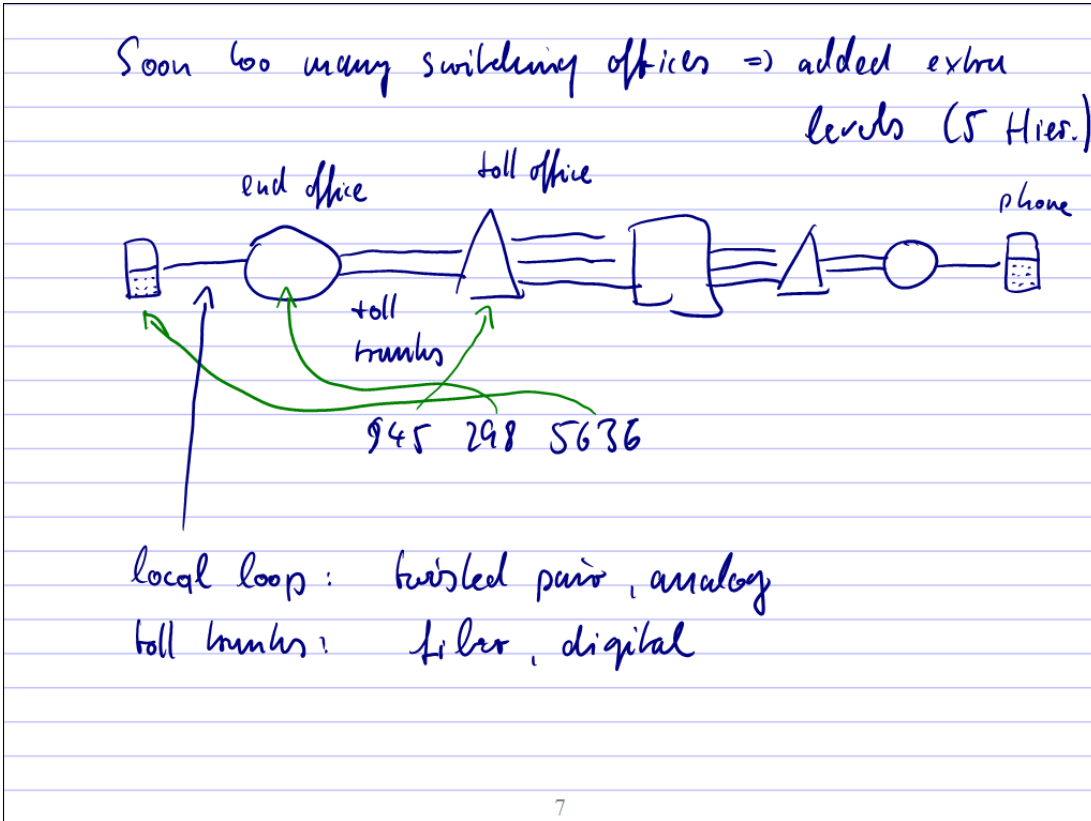 Soon too many switching offices => added extra
levels (5 Hier.)
end office
toll office
phone
toll
trunks
945 298 5636
local loop: twisted pair, analog
toll trunks: fiber, digital
7